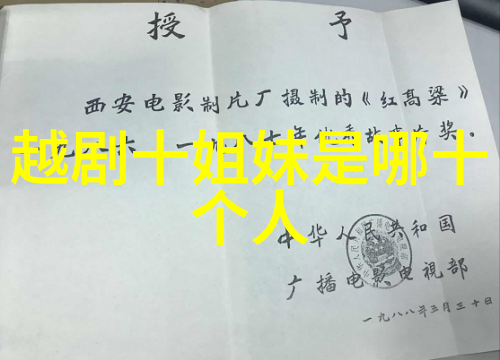 授予
西安电影制片厂摄制的《红高粱》
越剧十姐妹是哪十
个人
中华人民共和国
广播电影电视部
一九八八年三月三十日